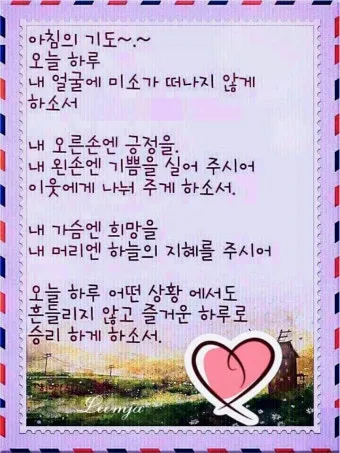 아침의 기도~.~
오늘 하루
내 얼굴에 미소가 떠나지 않게
하소서
내 오른손엔 긍정을.
내 왼손엔 기쁨을 실어 주시어
이웃에게 나눠 주게 하소서.
내 가슴엔 희망을
내 머리엔 하늘의 지혜를 주시어
오늘 하루 어떤 상황 에서도
흔들리지 않고 즐거운 하루로
승리 하게 하소서.
Leemja